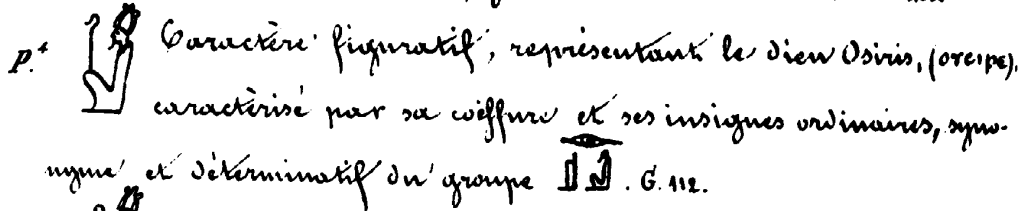 P.+ Caractère figuratif, représentant le dieu Osiris, (ⲟⲩⲥⲓⲣⲉ).
caractérisé par sa coëffure et ses insignes ordinaires, syno-
nyme et déterminatif du groupe . G. 112.